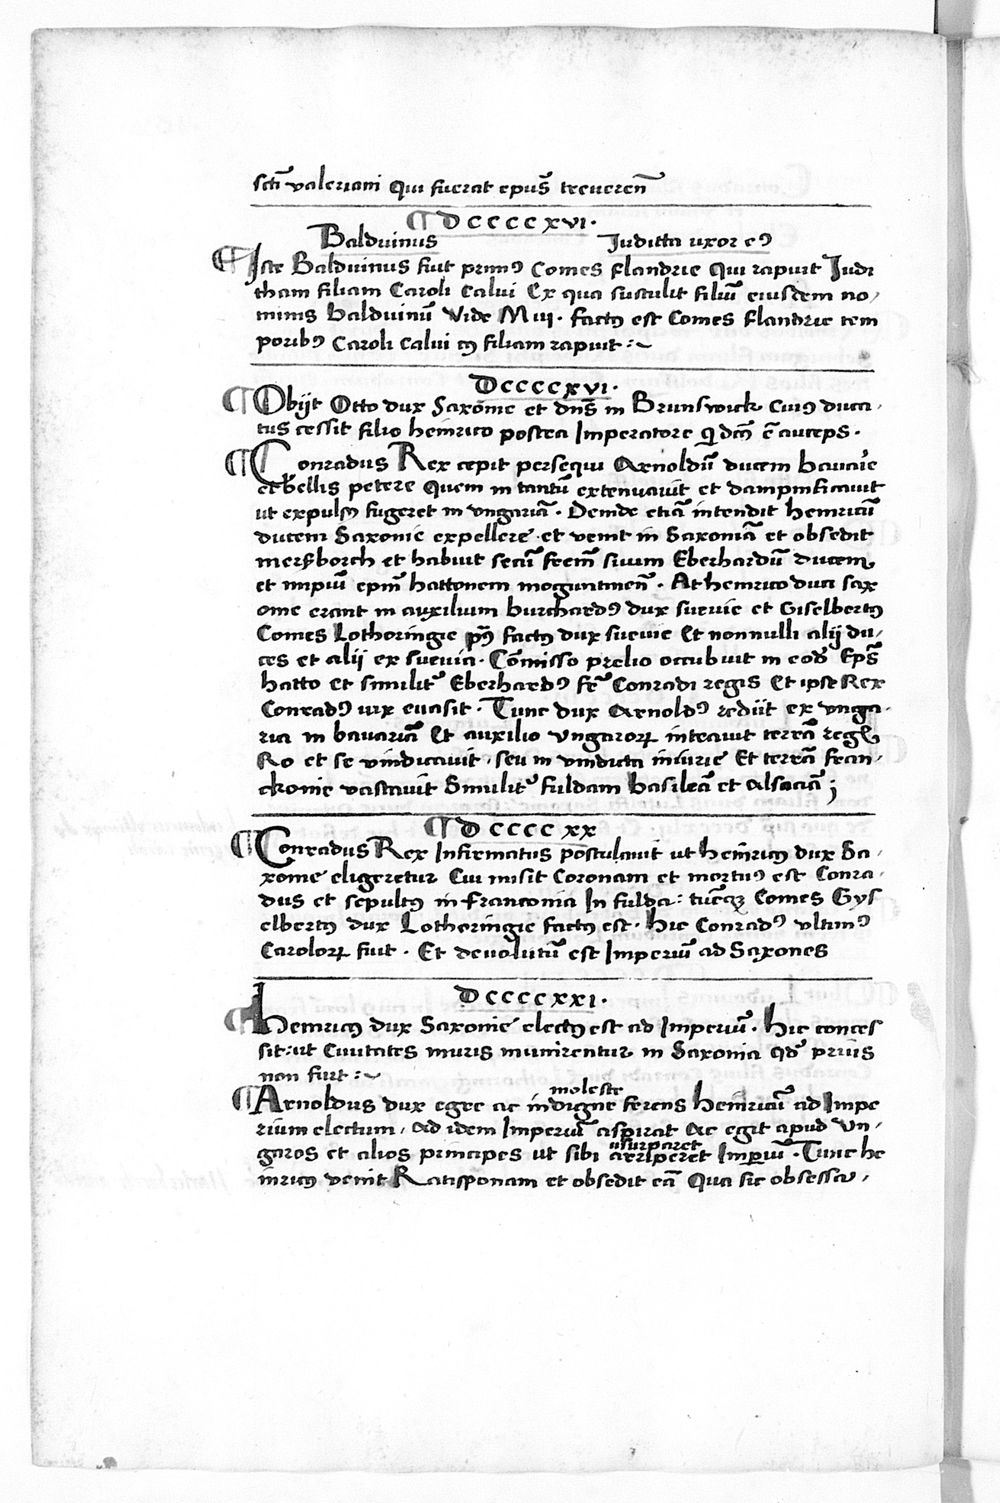 sctī valeriani Qui fuerat epūs treuereñ
¶ DCCCCXVI.
Balduinus Juditta uxor eꝰ
¶ Iste Balduinus fuit primꝰ Comes flandrie Qui rapuit Judi
tham filiam Caroli Calui Ex qua sustulit filiū eiusdem no,
minis balduinū Vide M iij. factꝰ est Comes flandrie tem
poribꝰ Caroli Calui cꝰ filiam rapuit :~
DCCCCXVI.
¶ Obijt Otto dux Saxonie et dn̄s in Brunswick Cuiꝰ duca,
tus cessit filio heinrico postea Imperatore q̇ dcm̄ ē auceps.
¶ Conradus Rex cepit persequi Arnoldū ducem bauarie
et bellis petere Quem in tantū extenuauit et dampnificauit
ut expulsꝰ fugeret in vngariā. Deinde etiā intendit heinricū
ducem Saxonie expellere et venit in Saxoniā et obsedit
merßborch et habuit secū frem̄ suum Eberhardū ducem,
et impiū epm̄ hattonem moguntineñ. At heinrico duci sax
onie erant in auxilium burchardꝰ dux sueuie et Giselbertꝰ
Comes Lothoringie pꝰ factꝰ dux sueuie Et nonnulli alij du,
ces et alij ex sueuia. Cōmisso prelio occubuit in eod̄ Ep̄s
hatto et similit͛ Eberhardꝰ fr̄ Conradi regis Et ipse Rex
Conradꝰ uix euasit. Tunc dux Arnoldꝰ redijt ex vnga,
ria in bauariā Et auxilio vngarorꝝ intrauit terrā regꝭ
Ro et se vindicauit, seu in vindicta iniurie Et terrā fran,
ckonie vastauit Similit͛ fuldam basileā et Alsaciā ;
¶ DCCCCXX
¶ Conradus Rex Infirmatus postulauit ut heinricꝰ dux Sa,
xonie eligeretur Cui misit Coronam et mortuꝰ est Conra,
dus et sepultꝰ in franconia In fulda: tūcqꝫ Comes Gys
elbertꝰ dux Lothoringie factꝰ est. hic Conradꝰ vltimꝰ
Carolorꝝ fuit. Et deuolutū est Imperiū ad Saxones
DCCCCXXI.
¶ heinricꝰ dux Saxonie electꝰ est ad Imperiū. hic conces
sit: ut Ciuitates muris munirentur in Saxonia qd̄ priūs
non fuit :~
moleste
¶ Arnoldus dux egre ac indigne ferens heinricū ad Impe
rium electum, Ad idem Imperiū aspirat Ac egit apud Vn,
usurparet
garos et alios principes ut sibi arriperet Imꝑiū. Tunc he
inricꝰ venit Ratisponam et obsedit eā Qua sic obsessa,